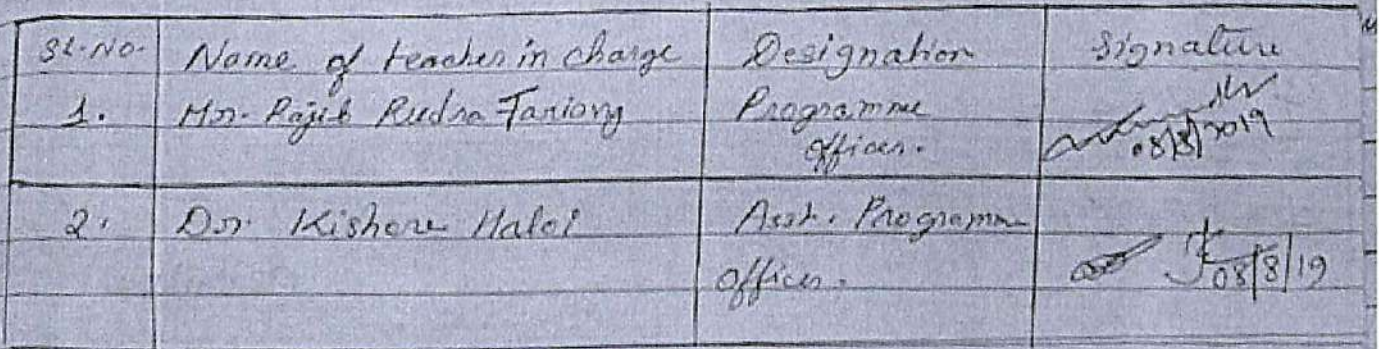 Sl. No. Name of teacher in charge Designation Signature
1. Mr. Rajib Rudra Tariang Programme
Officer. 08/8/2019
2. Dr. Kishore Haloi Asst. Programme
Officer. 08/8/19